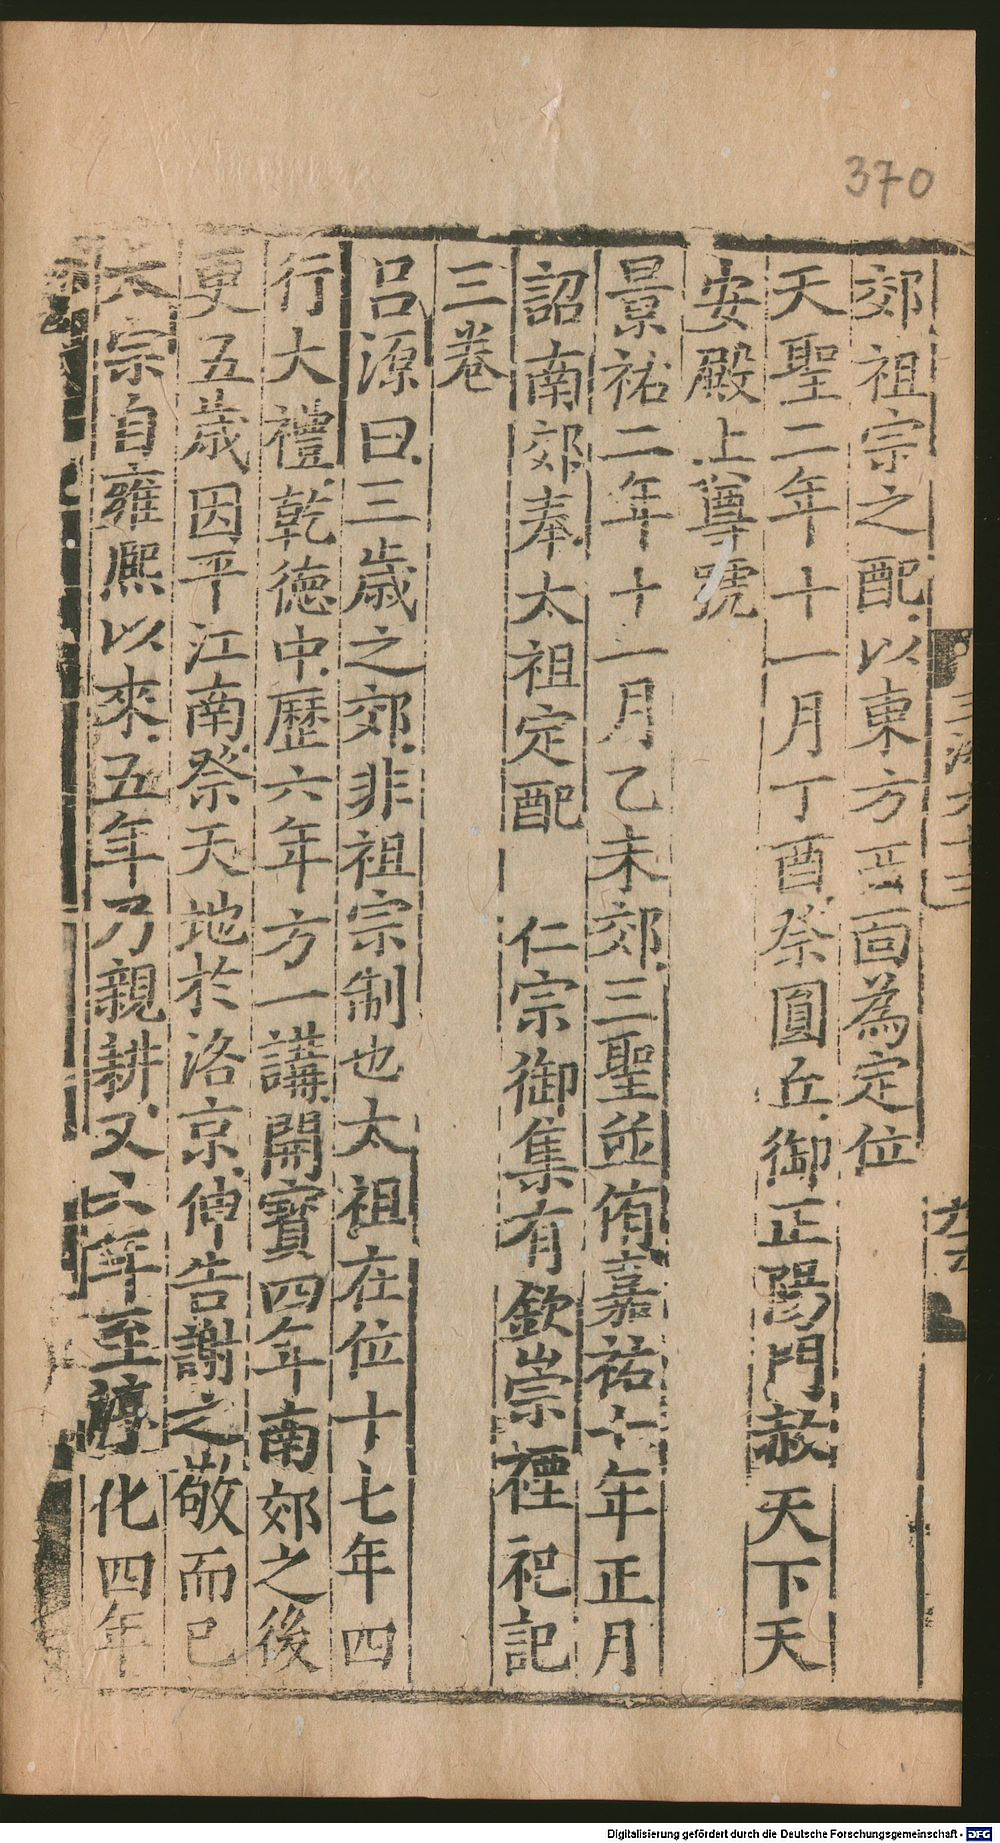 370
郊祖宗之配以東方西面為定位
天聖二年十一月丁酉祭圓丘御正陽門赦天下天
安殿上尊號
景祐二年十一月乙未郊三聖並侑嘉祐七年正月
詔南郊奉太祖定配 仁宗御集有欽崇禋祀記
三卷
呂源曰三歲之郊非祖宗制也太祖在位十七年四
行大禮乾德中歷六年方一講開寶四年南郊之後
更五歲因平江南祭天地於洛京伸告謝之敬而已
太宗自雍熙以來五年乃親耕又六年至淳化四年
Digitalisierung gefördert durch die Deutsche Forschungsgemeinschaft - DFG